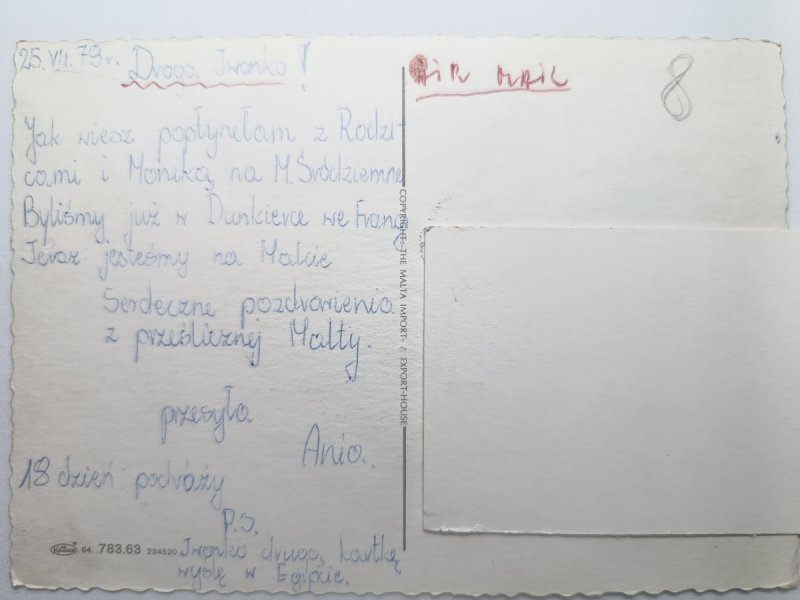 25. VII. 79 r.
Droga Iwonko!
Jak wiesz popłynęłam z Rodzi-
cami i Moniką na M. Śródziemne
Byliśmy już w Dunkierce we Franc
Teraz jesteśmy na Malcie
Serdeczne pozdrowienia
z prześlicznej Malty.
przesyła
Ania.
18 dzień podróży
P.S.
Iwonko drugą kartkę
wyślę w Egipcie.
64. 783.63 234520
COPYRIGHT: THE MALTA IMPORT- & EXPORT-HOUSE
AIR MAIL
8